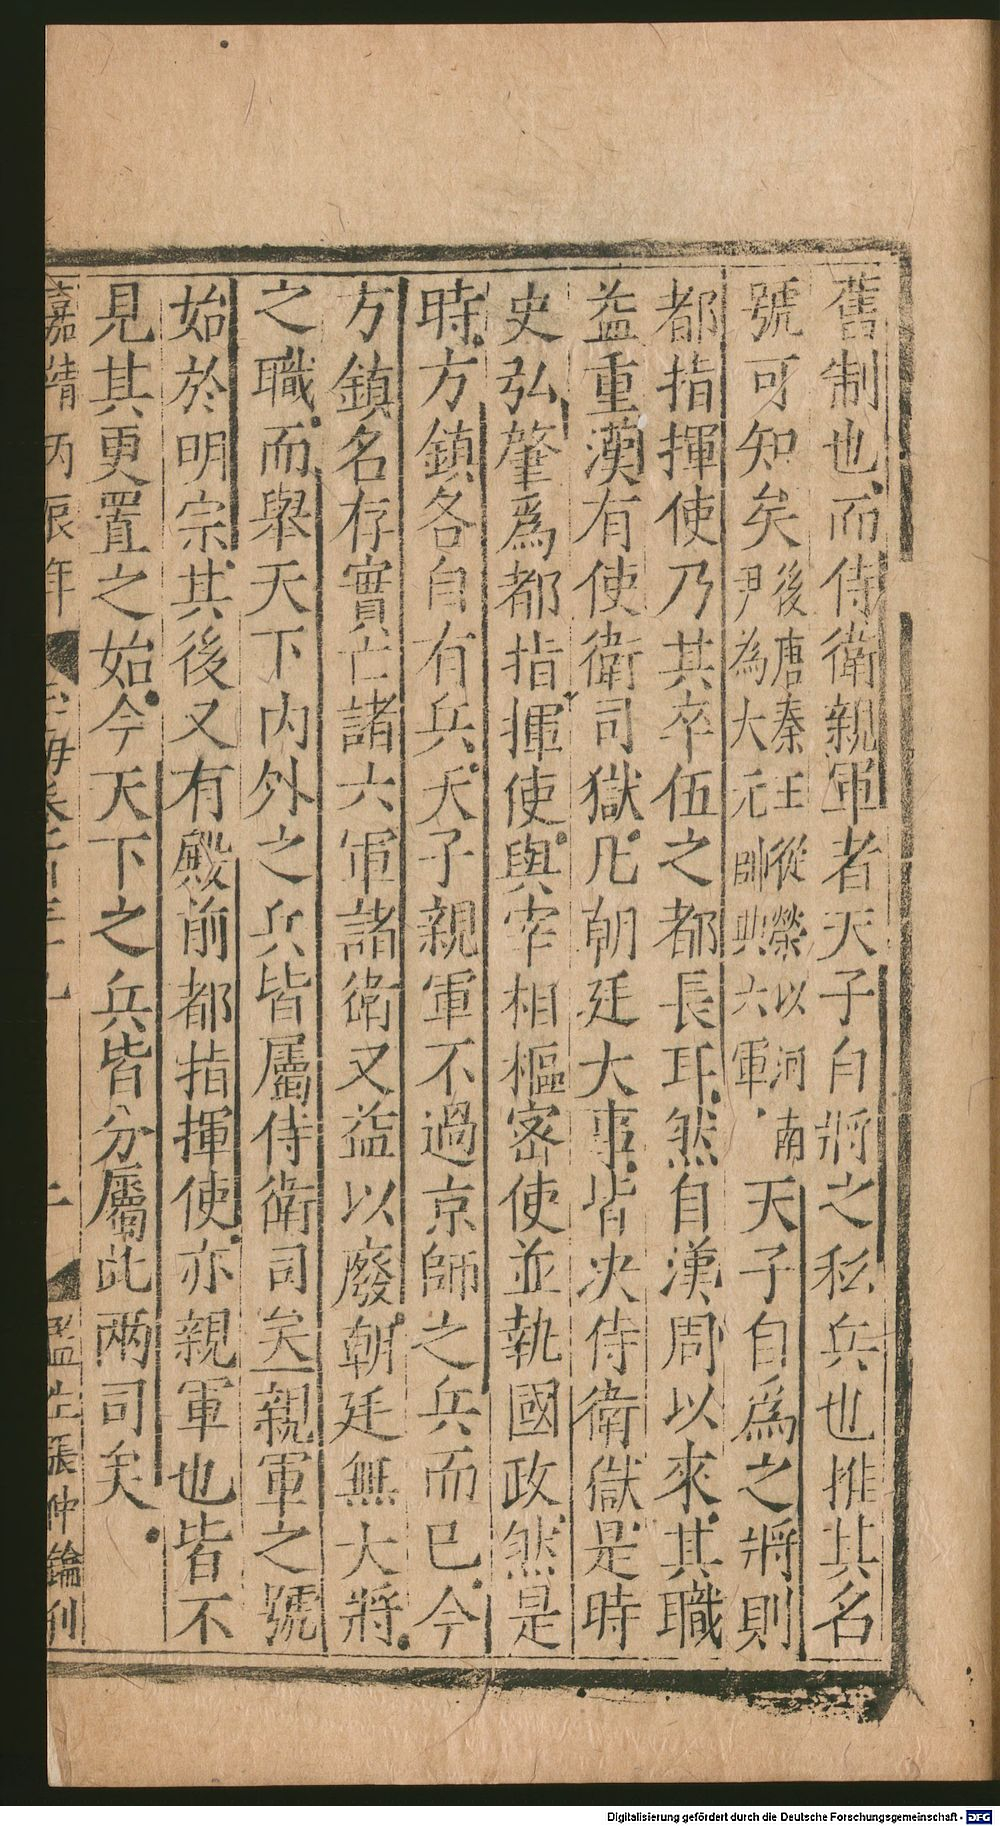 舊制也而侍衛親軍者天子自將之私兵也推其名
號可知矣後唐秦王從榮以河南尹為大元帥典六軍天子自爲之將則
都指揮使乃其卒伍之都長耳然自漢周以來其職
益重漢有使衛司獄凡朝廷大事皆決侍衛獄是時
史弘肇爲都指揮使與宰相樞密使並執國政然是
時方鎮各自有兵天子親軍不過京師之兵而已今
方鎮名存實亡諸六軍諸衛又益以廢朝廷無大將
之職而舉天下內外之兵皆屬侍衛司矣親軍之號
始於明宗其後又有殿前都指揮使亦親軍也皆不
見其更置之始今天下之兵皆分屬此兩司矣
嘉靖丙辰年
監生張仲鑰刊
Digitalisierung gefördert durch die Deutsche Forschungsgemeinschaft - DFG